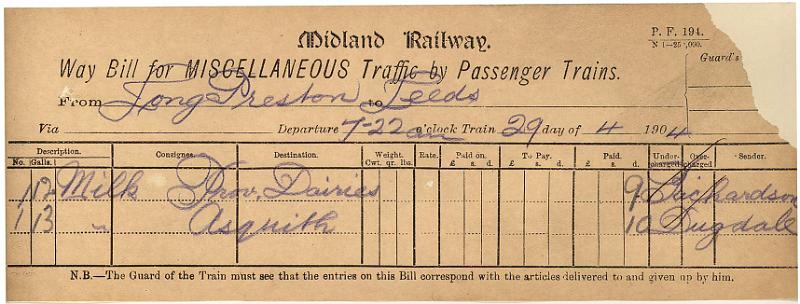 Midland Railway.
P. F. 194.
Way Bill for MISCELLANEOUS Traffic by Passenger Trains.
Guard's
From Long Preston to Leeds
Via Departure 7-22 am o'clock Train 29 day of 4 1904
Description. Consignee. Destination. Weight. Rate. Paid on. To Pay. Paid. Under-charged Over-charged Sender.
No. Galls. Cwt. qr. lbs. £ s. d. £ s. d. £ s. d.
1 Milk Prov. Dairies 9 Richardson
1 13 " Asquith 10 Dugdale
N.B.—The Guard of the Train must see that the entries on this Bill correspond with the articles delivered to and given up by him.